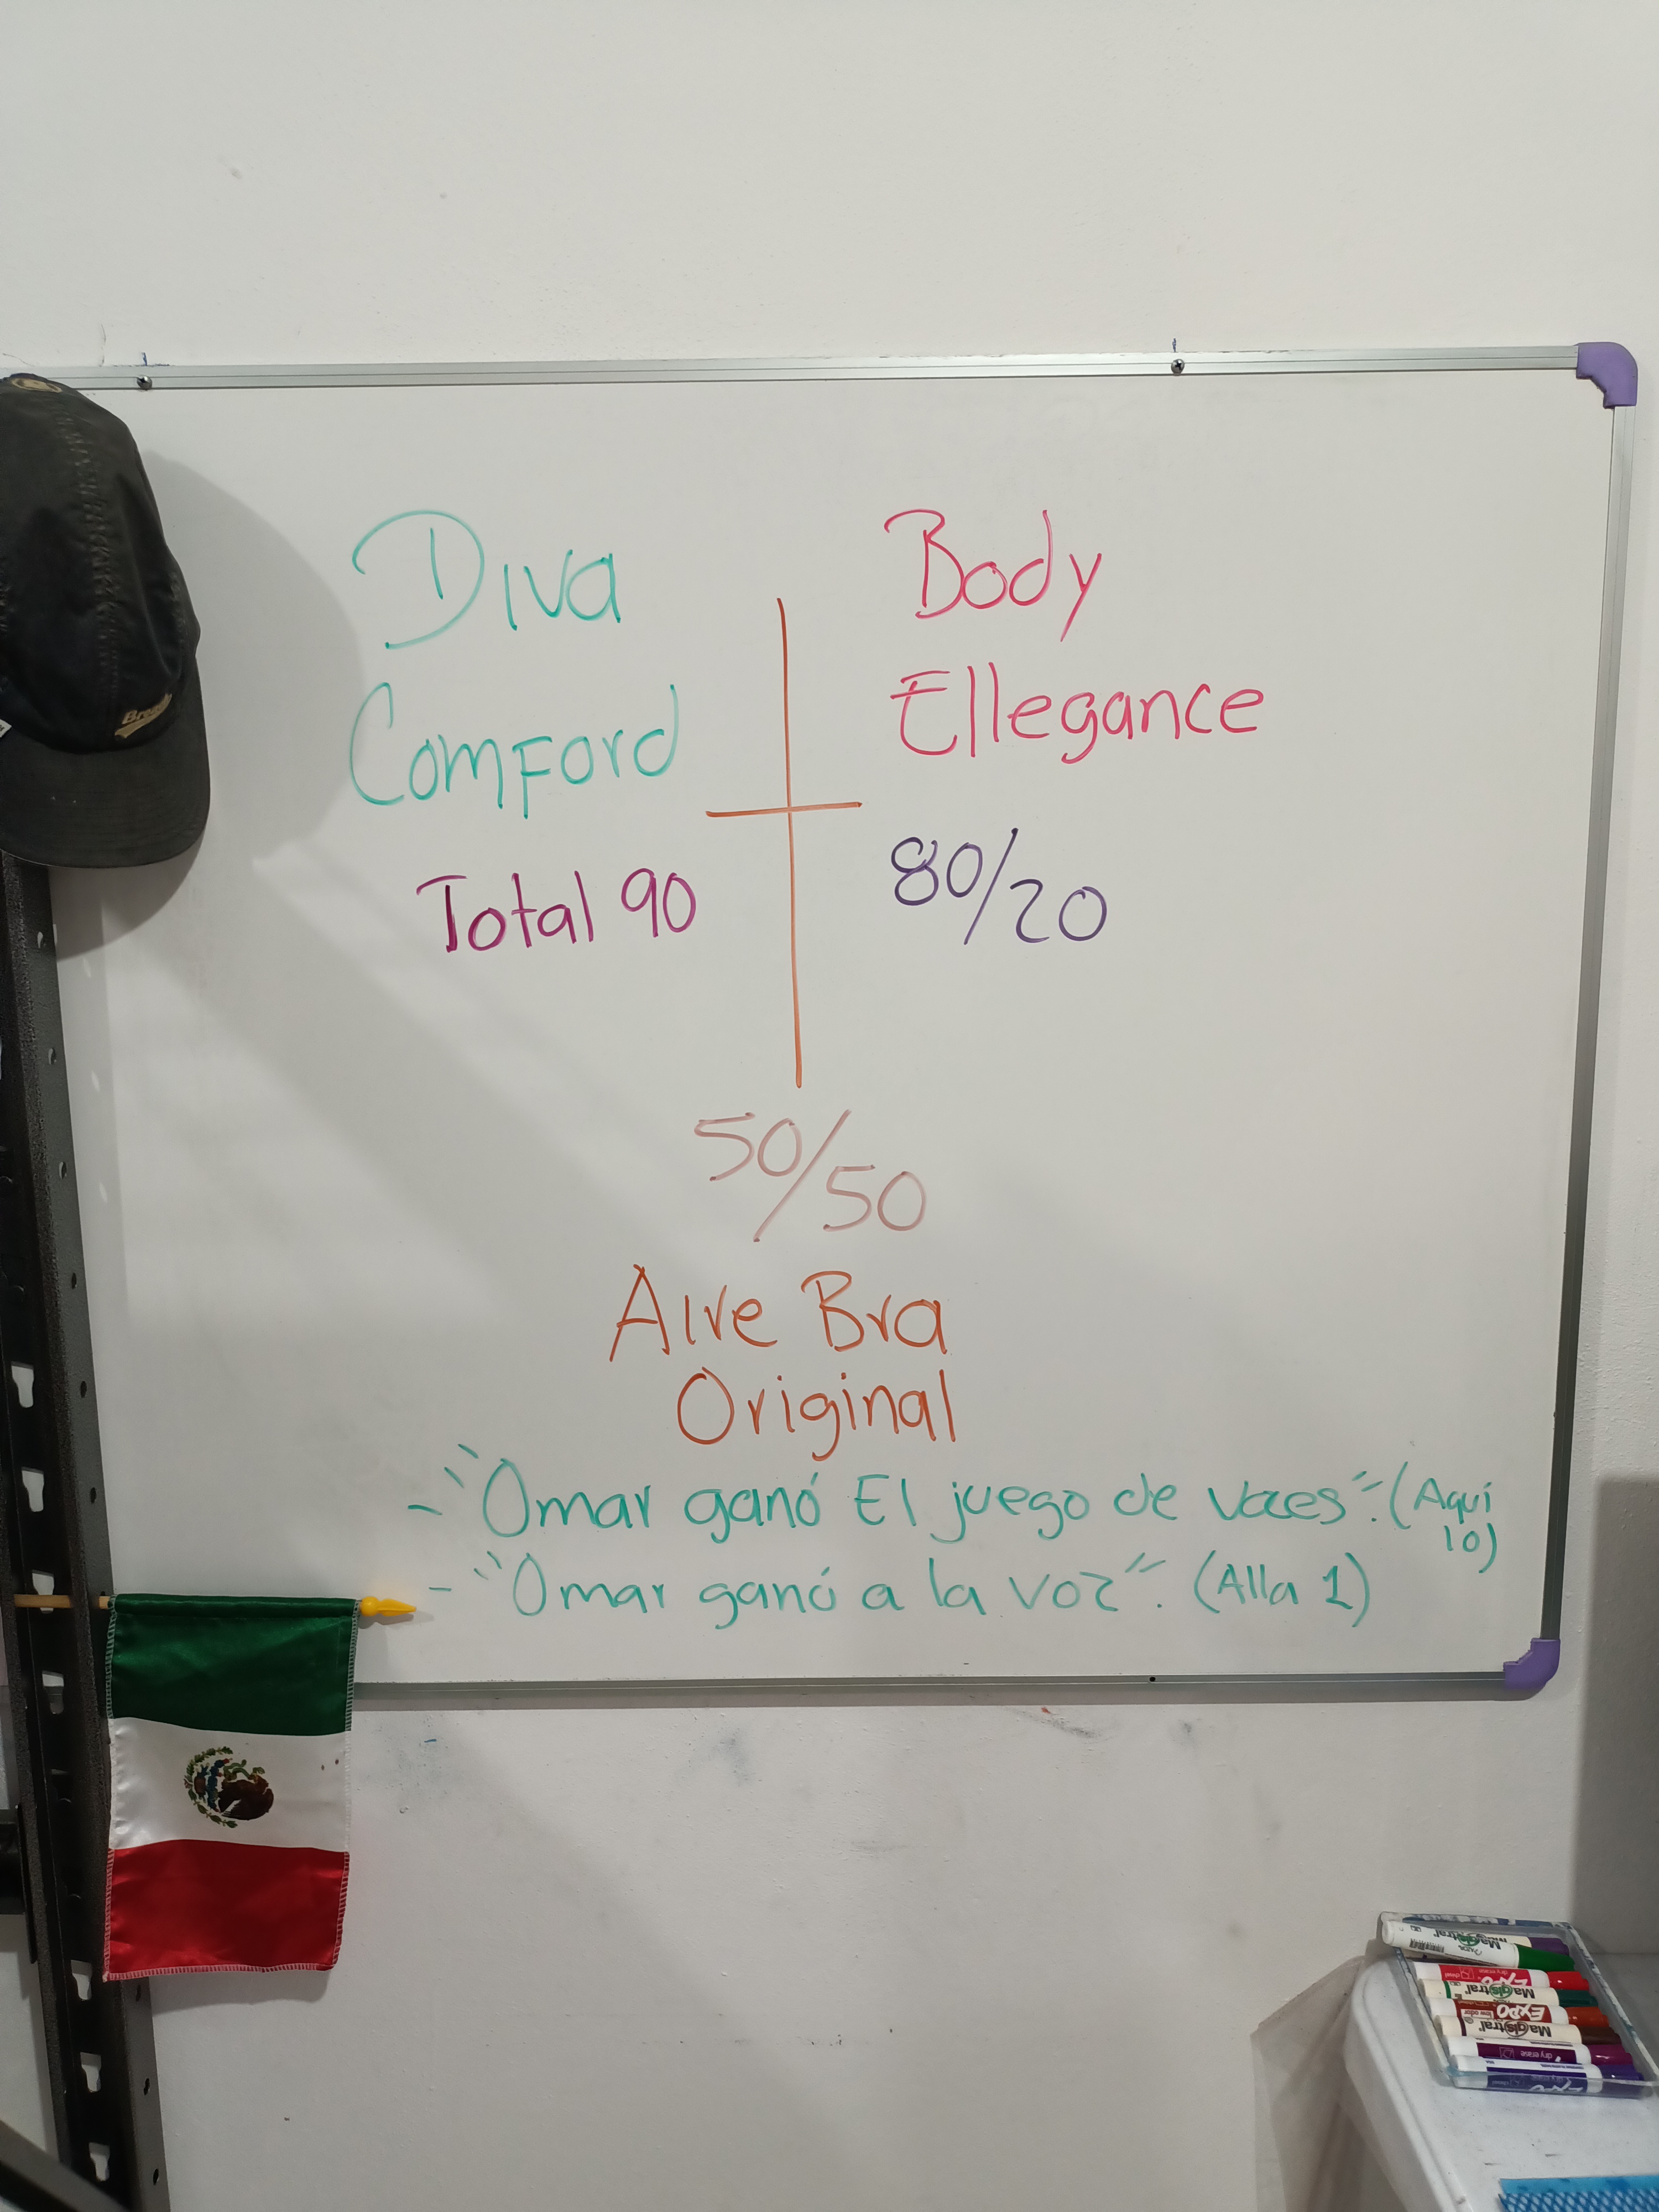 Diva
Comford
Total 90
Body
Ellegance
80/20
50/50
Aire Bra
Original
- "Omar ganó El juego de voces". (Aquí
10)
- "Omar ganó a la voz". (Alla 1)
Magistral
EXPO
Magistral
EXPO
low odor
Magistral
dry erase
EXPO